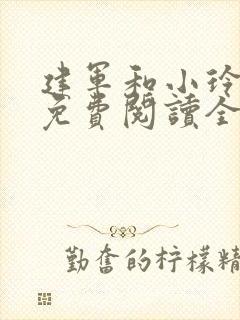 建军和小玲
免費閱讀全
勤奮的柠檬精